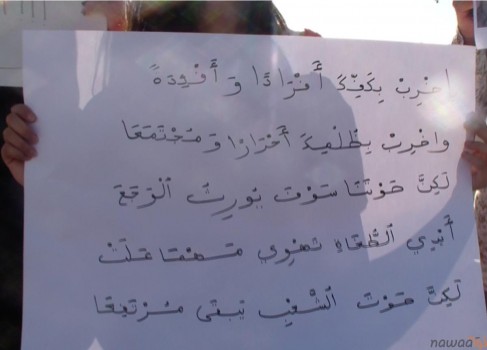 اِضْرِبْ بِكَفِّكَ أَفْرَادًا وَ أَفْئِدَةً
وَاضْرِبْ بِظُلْمِكَ أَحْرَارًا وَ مُجْتَمَعَا
لَكِنَّ صَوْتَنَا سَوْفَ يُورِثُ الْوَجَعَ
أَيْدِي الطُّغَاةِ تَهْوِي مَهْمَا عَلَتْ
لَكِنَّ صَوْتَ الشَّعْبِ يَبْقَى مُرْتَفِعَا